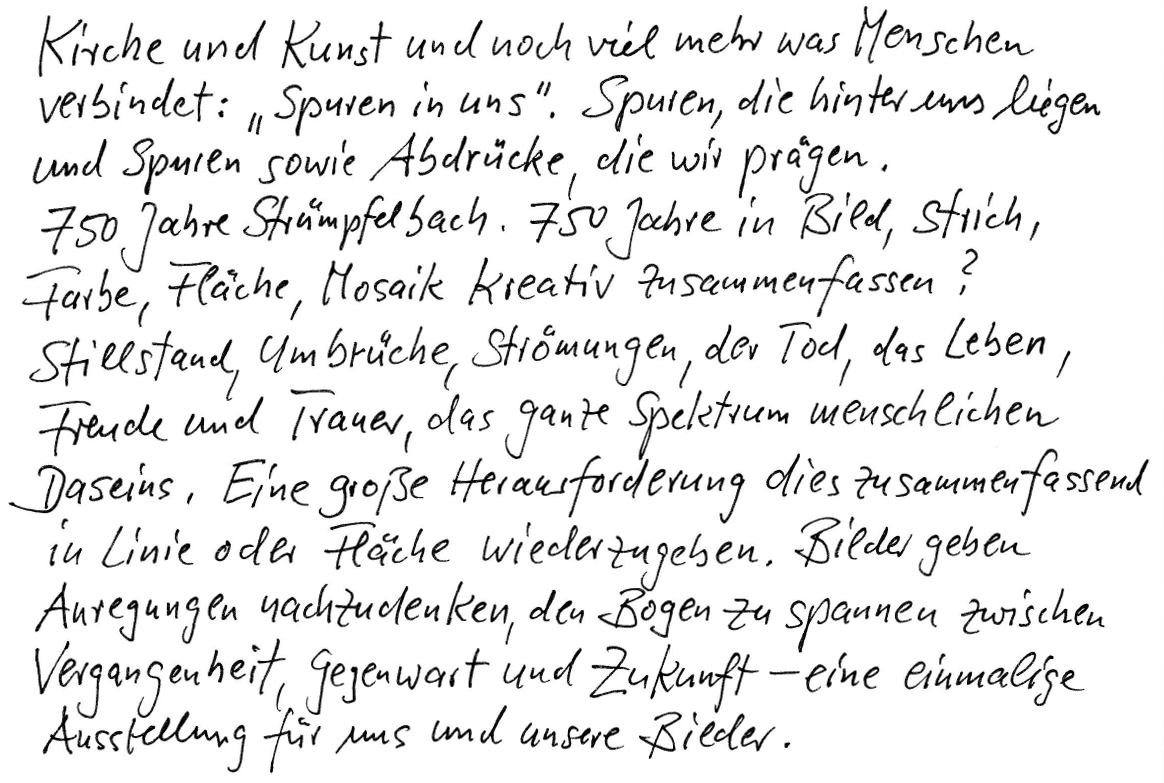 Kirche und Kunst und noch viel mehr was Menschen
verbindet: „Spuren in uns". Spuren, die hinter uns liegen
und Spuren sowie Abdrücke, die wir prägen.
750 Jahre Strümpfelbach. 750 Jahre in Bild, Strich,
Farbe, Fläche, Mosaik kreativ zusammenfassen?
Stillstand, Umbrüche, Strömungen, der Tod, das Leben,
Freude und Trauer, das ganze Spektrum menschlichen
Daseins. Eine große Herausforderung dies zusammenfassend
in Linie oder Fläche wiederzugeben. Bilder geben
Anregungen nachzudenken, den Bogen zu spannen zwischen
Vergangenheit, Gegenwart und Zukunft – eine einmalige
Ausstellung für uns und unsere Bilder.